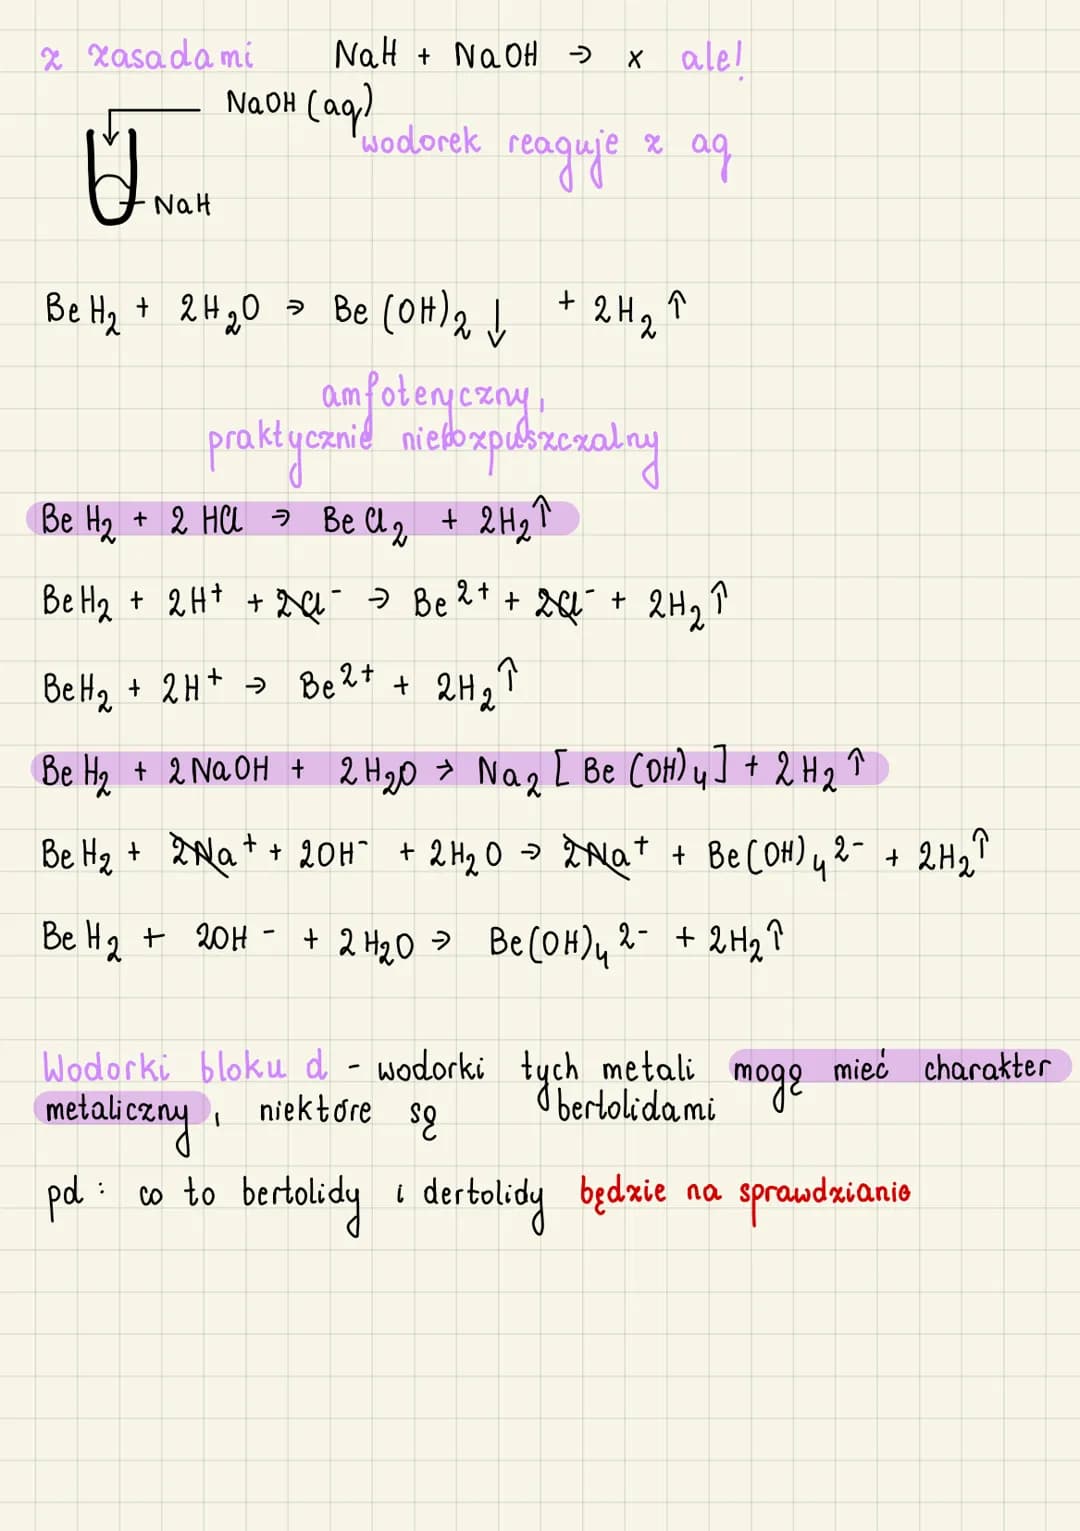 z zasadami NaH + NaOH → x ale!
NaOH (aq)
wodorek reaguje z aq
NaH
BeH₂ + 2H₂O → Be(OH)₂↓ + 2H₂↑
amfoteryczny,
praktycznie nierozpuszczalny
BeH₂ + 2HCl → BeCl₂ + 2H₂↑
BeH₂ + 2H⁺ + 2Cl⁻ → Be²⁺ + 2Cl⁻ + 2H₂↑
BeH₂ + 2H⁺ → Be²⁺ + 2H₂↑
BeH₂ + 2NaOH + 2H₂O → Na₂[Be(OH)₄] + 2H₂↑
BeH₂ + 2Na⁺ + 2OH⁻ + 2H₂O → 2Na⁺ + Be(OH)₄²⁻ + 2H₂↑
BeH₂ + 2OH⁻ + 2H₂O → Be(OH)₄²⁻ + 2H₂↑
Wodorki bloku d - wodorki tych metali mogą mieć charakter
metaliczny, niektóre są bertolidami
pd: co to bertolidy i dertolidy będzie na sprawdzianie